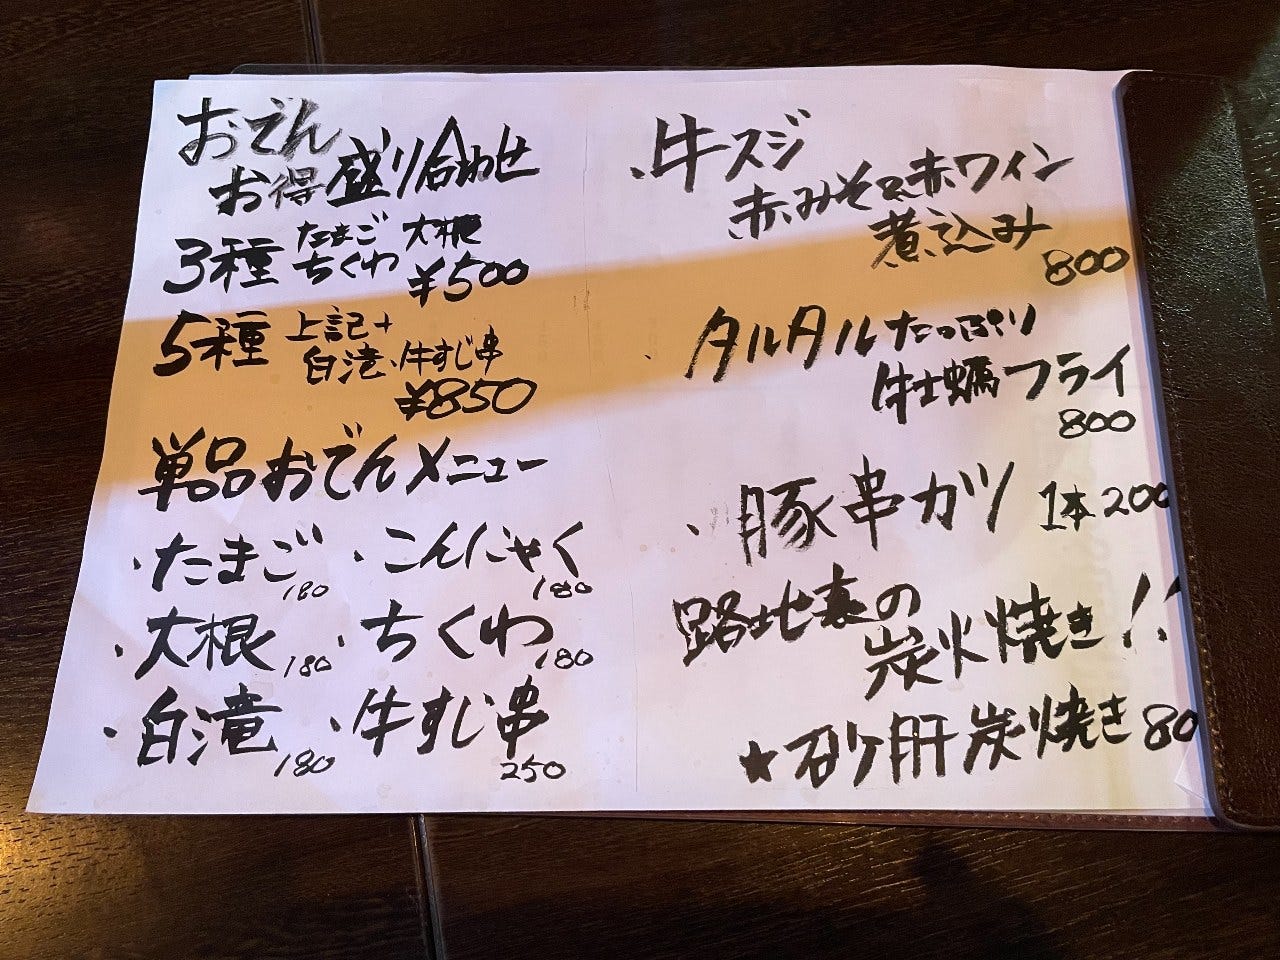 おでん
お得盛り合わせ
3種 たまご 大根
ちくわ ¥500
5種 上記+
白滝、牛すじ串
¥850
単品おでんメニュー
・たまご 180 ・こんにゃく 180
・大根 180 ・ちくわ 180
・白滝 180 ・牛すじ串 250
・牛スジ
赤みそ&赤ワイン
煮込み
800
・タルタルたっぷり
牡蠣フライ
800
・豚串カツ 1本200
路地裏の
炭火焼き!!
★砂肝炭焼き 80